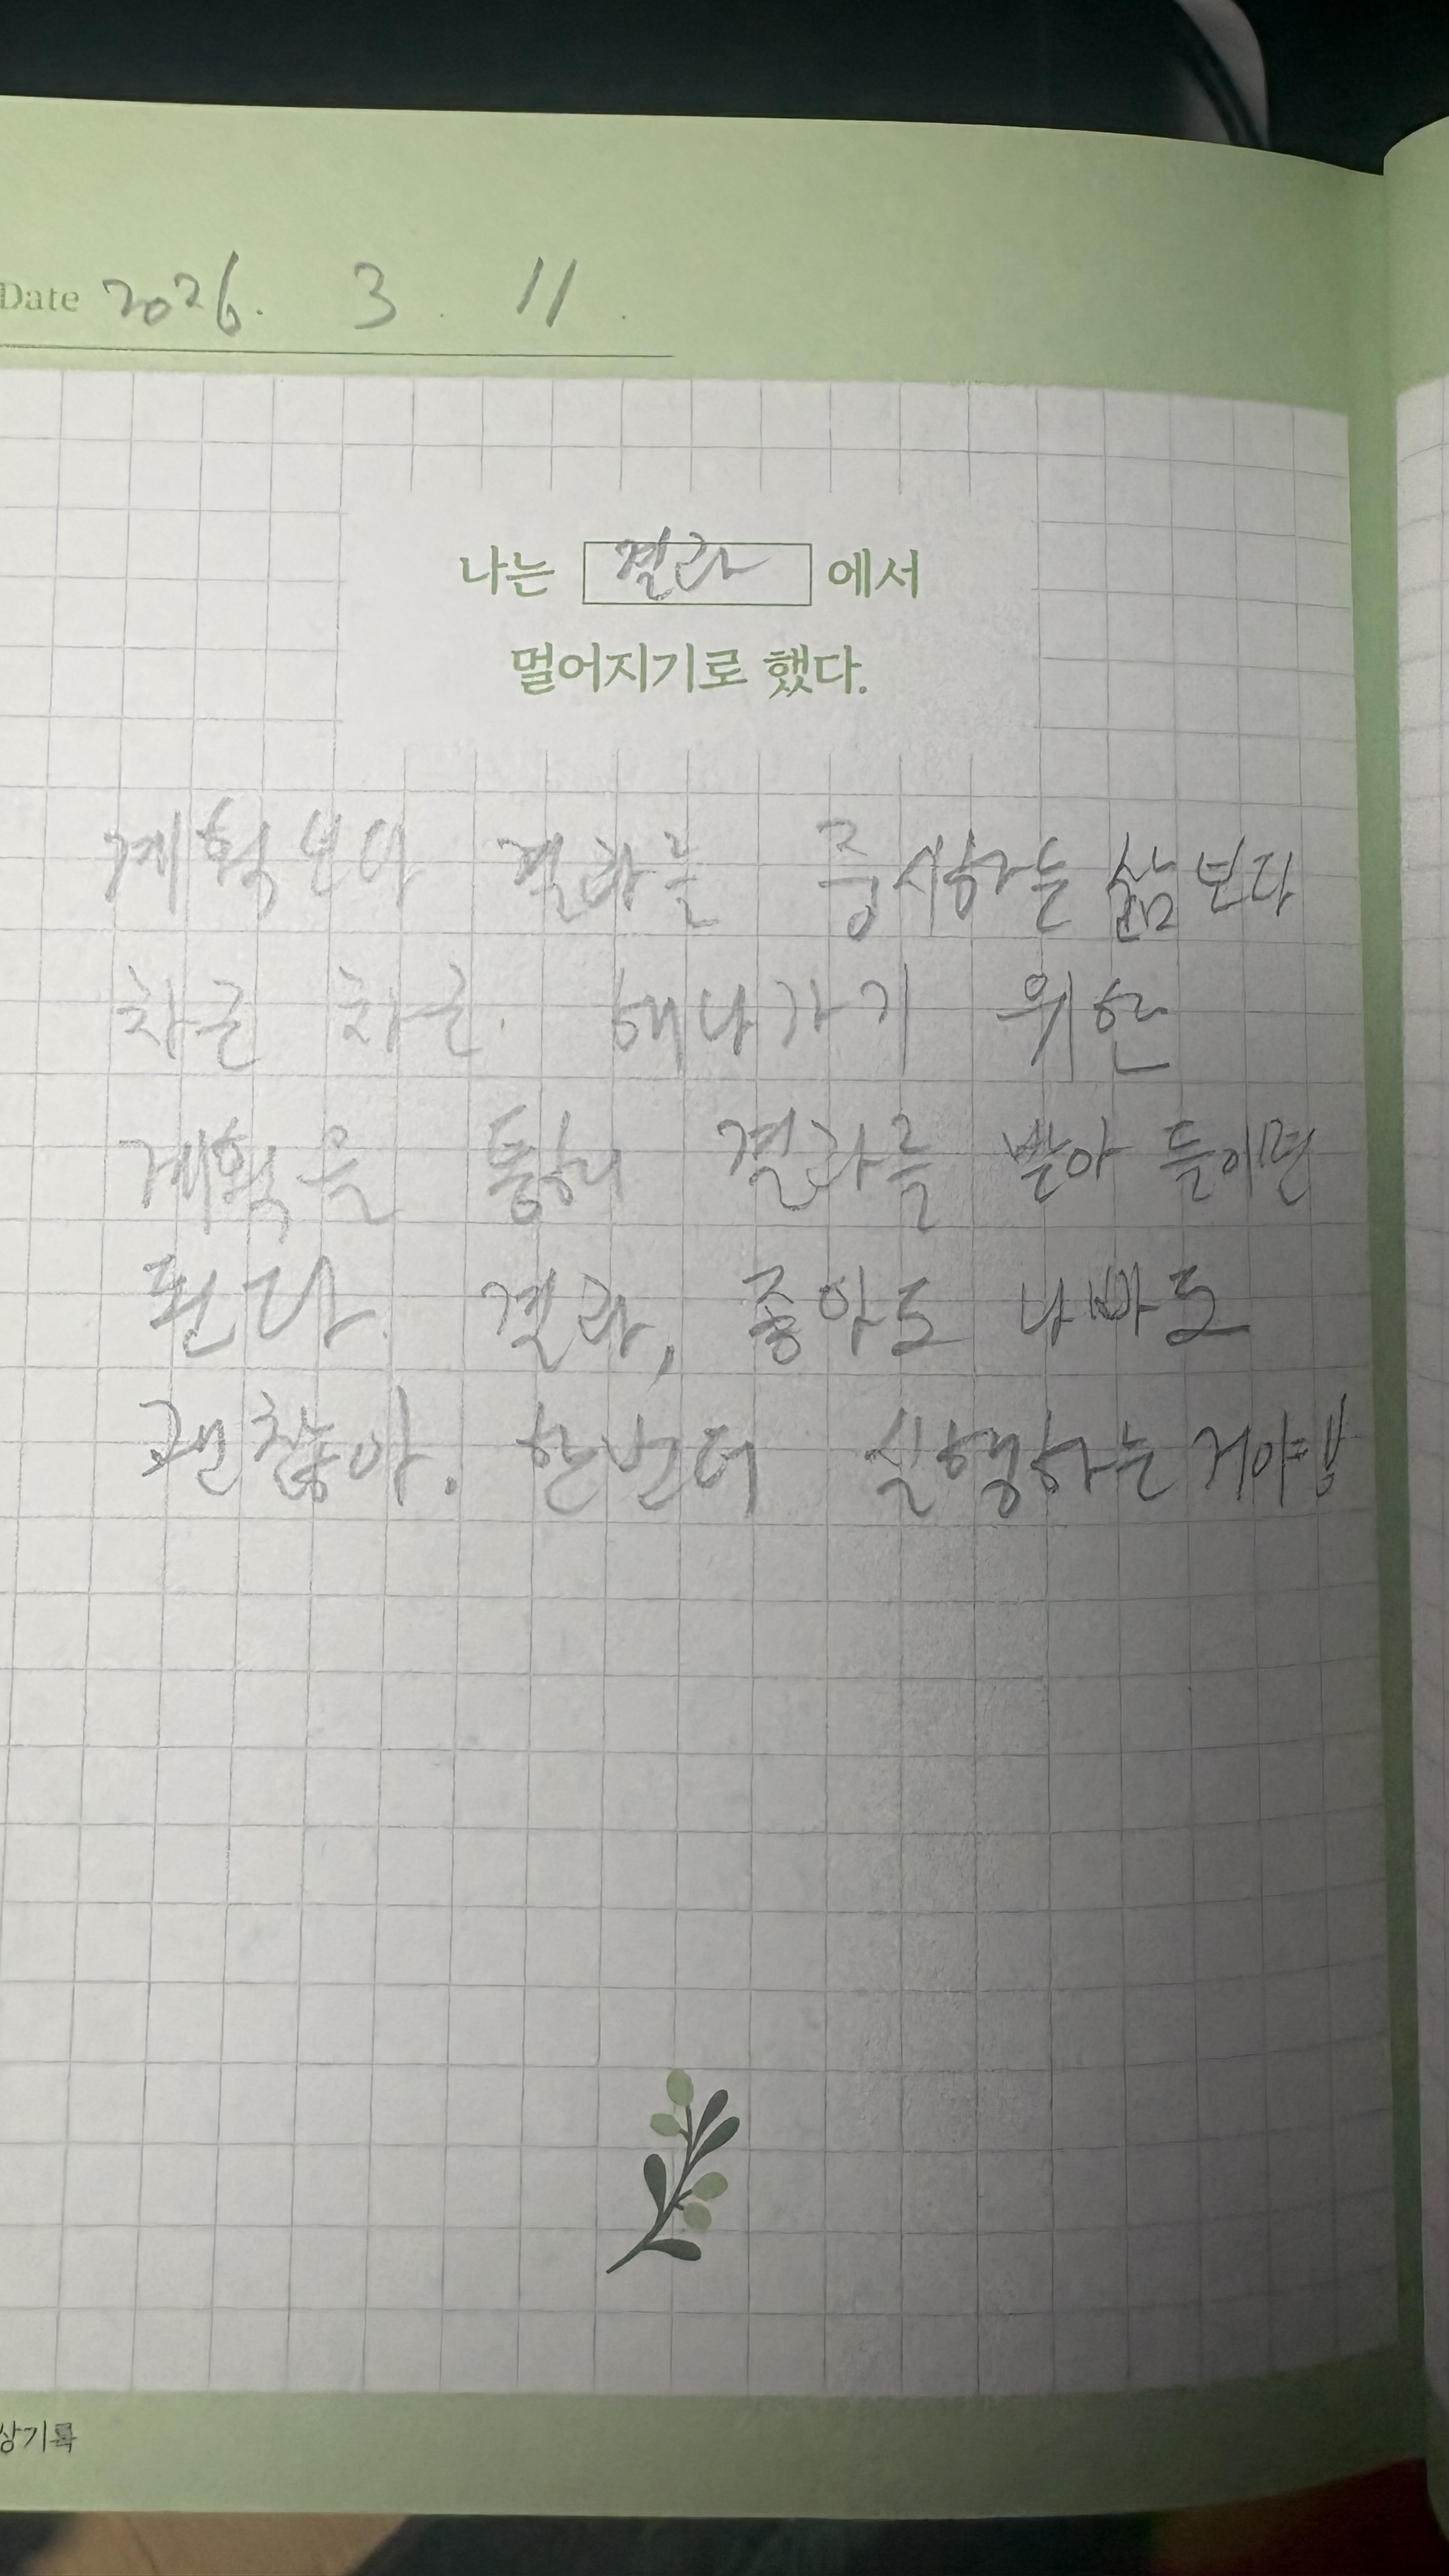 Date 2026. 3. 11.
나는 결과 에서
멀어지기로 했다.
계획보다 결과를 중시하는 삶보다
차근 차근 해나가기 위한
계획을 통해 결과를 받아 들이면
된다. 결과, 좋아도 나빠도
괜찮아. 한번더 실행하는 거야
상기록